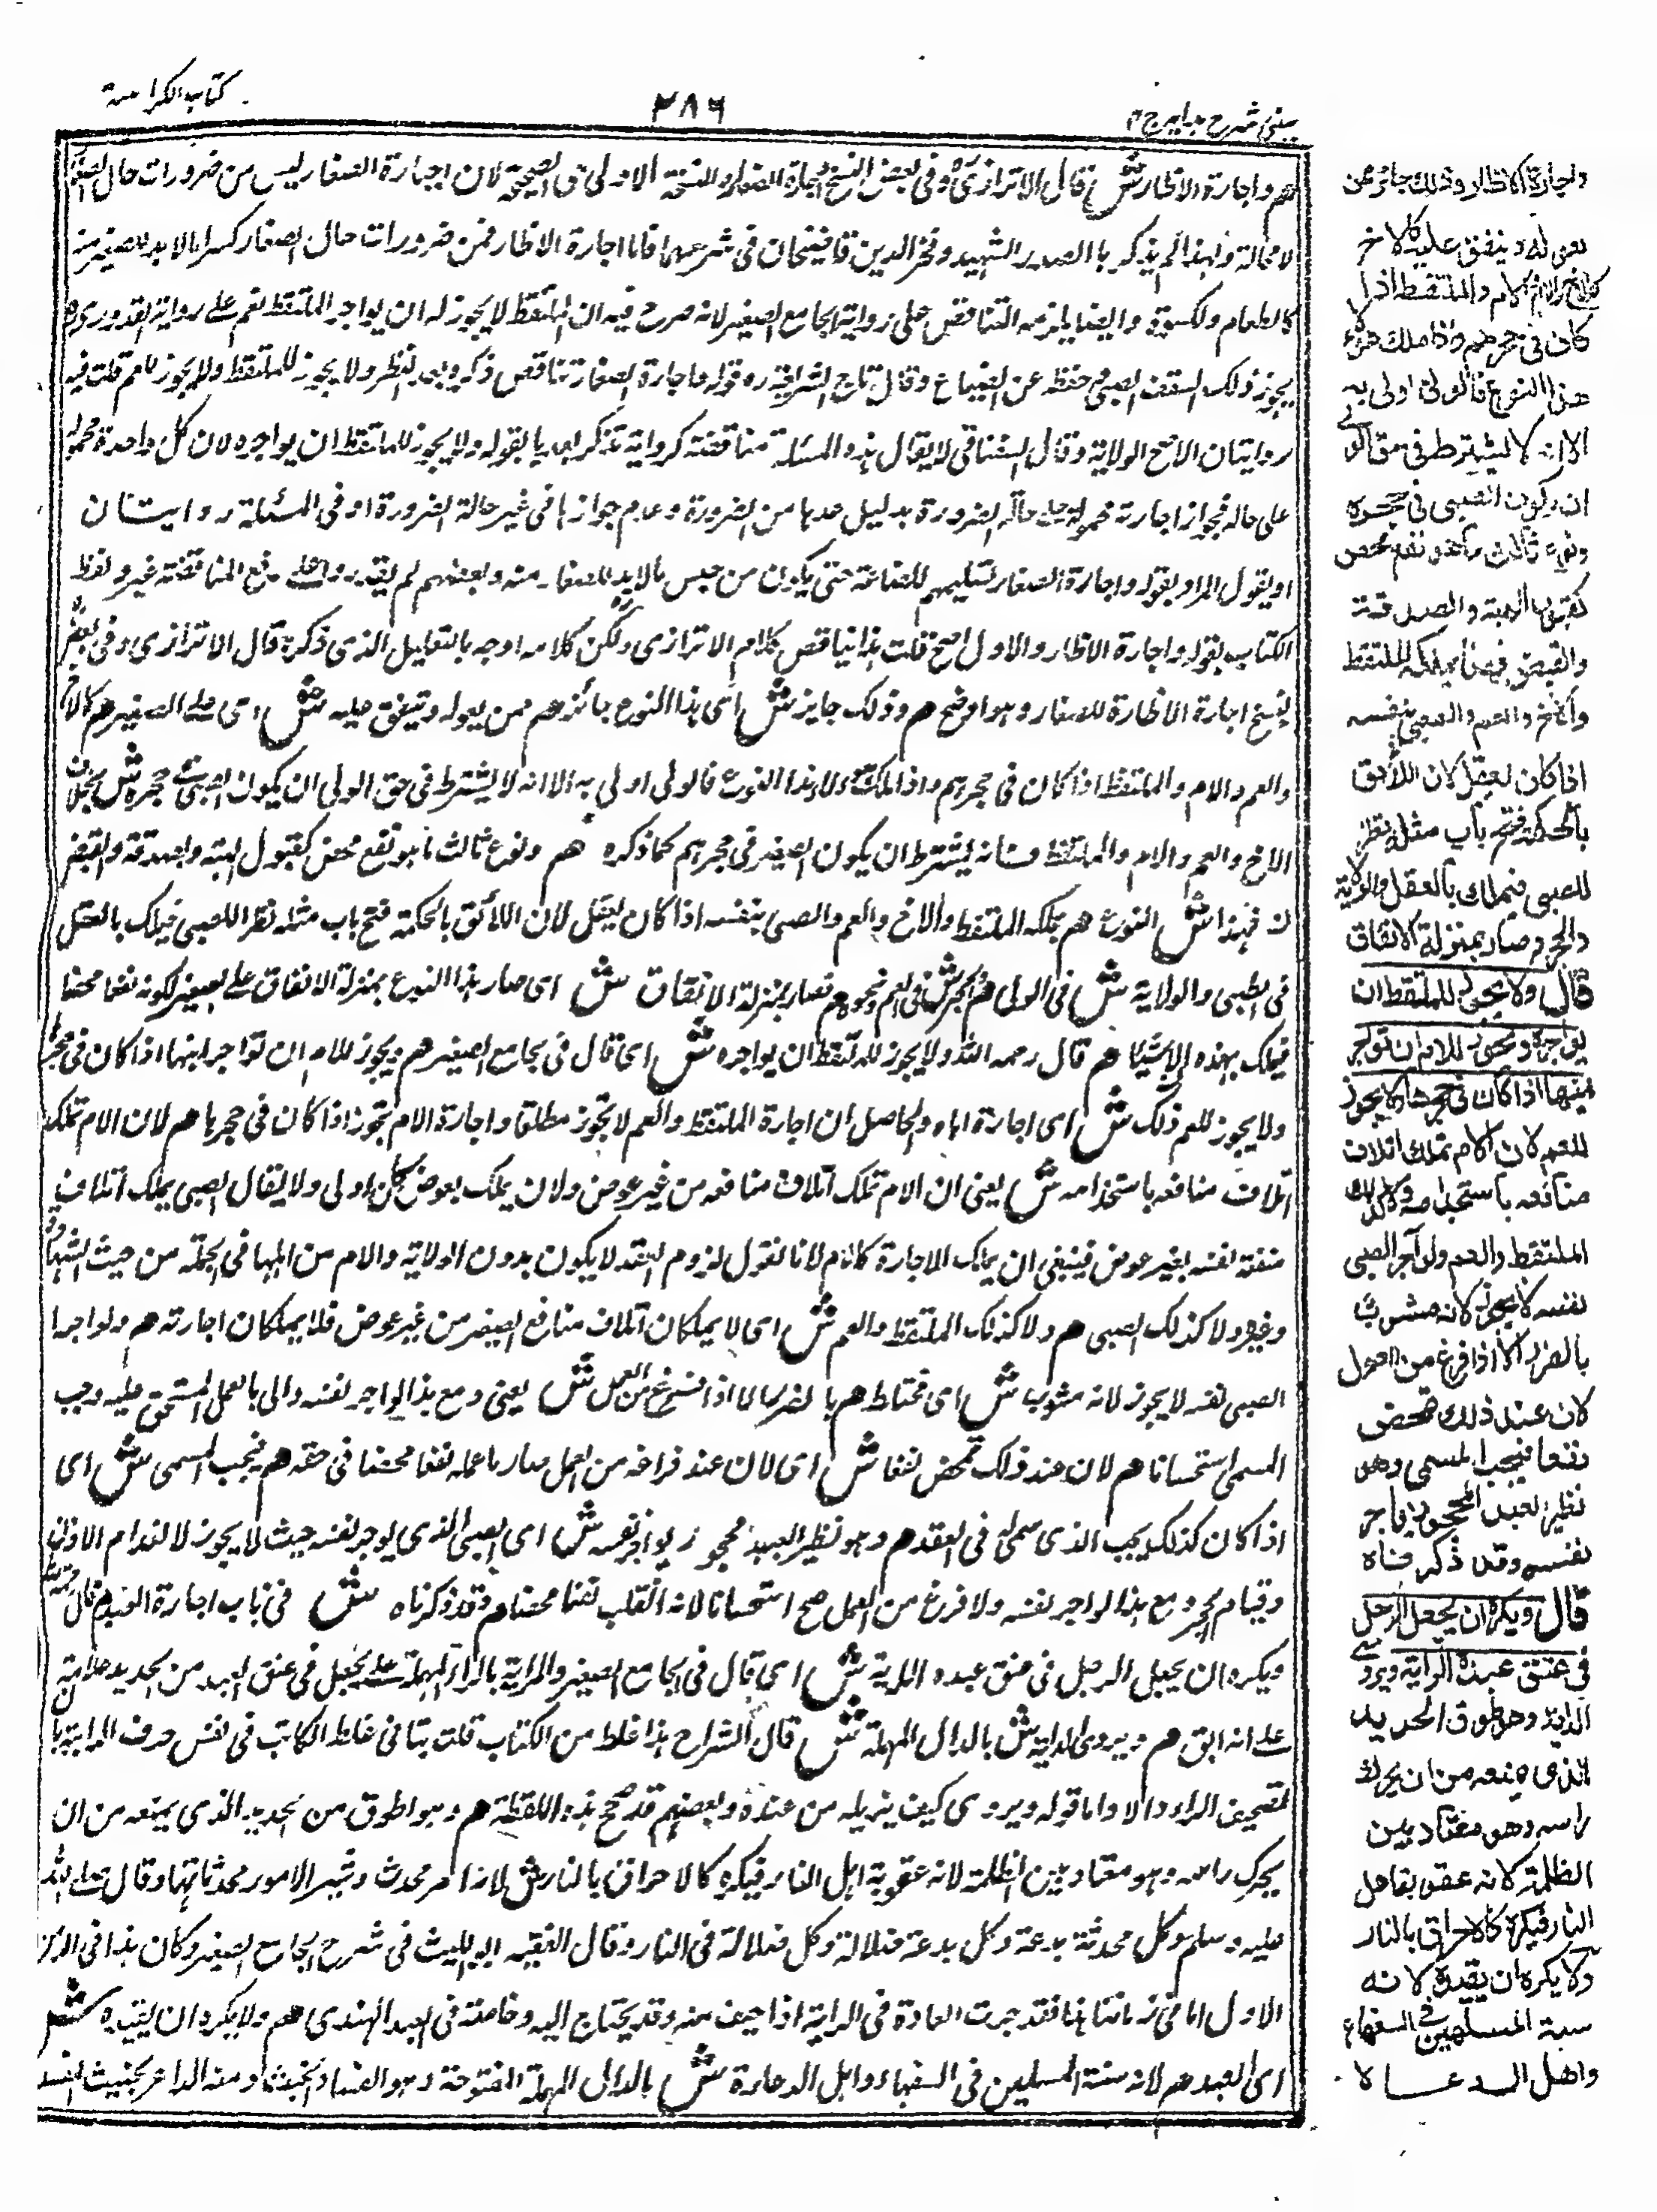 عینی شرح ہدایہ ج ۴
۲۸۶
کتاب الکراہیة
ھم واجارة الاظار ش قال الاترازی وفی بعض النسخ اجارة الصغار والنسخة الاولی ھی الصحیحة لان اجارة الصغار لیس من ضرورات حال الصغار
لا محالة ولہذا لم یذکرہا الصدر الشہید وفخر الدین قاضیخان فی شرحیہما فاما اجارة الاظار فمن ضرورات حال الصغار کشراء ما لا بد للصغیر منہ
کالطعام والکسوة وایضا یلزمہ التناقض علی روایة الجامع الصغیر لانہ صرح فیہ ان الملتقط لا یجوز لہ ان یواجر الملتقط نعم علی روایة القدوری
یجوز ذلک حفظ عن الضیاع وقال تاج الشریعة قولہ واجارة الصغار تناقض ولا یجوز للملتقط قلت فیہ
روایتان الاصح الولایة وقال السغناقی لا یقال ہذہ المسئلة مناقضة لروایة بقولہ ولا یجوز للملتقط ان یواجرہ لان کل واحدة محمولة
علی حالة فجواز اجارتہ محمولة علی حالة الضرورة بدلیل عدہا من الضرورة وعدم جوازہا فی غیر حالة الضرورة او فی المسئلة روایتان
او یقول المراد بقولہ واجارة الصغار تسلیمہم للصناعة حتی یکون من جنس ما لا بد للصغار منہ وبعضہم لم یقید دفع المناقضة غیر لفظ
الکتاب بقولہ واجارة الاظار والاول اصح قلت ہذا یناقض کلام الاترازی ولکن کلامہ اوجہ بالتعلیل الذی ذکرہ قال الاترازی وفی بعض
النسخ اجارة الاظارة للصغار وہو اوضح ھم وذلک جایز ش ای ہذا النوع جائز ھم ممن یعولہ وینفق علیہ ش ای علی الصغیر ھم کالاخ
والعم والام والملتقط اذا کان فی حجرہم واذا ملک ہولاء ہذا النوع فالولی اولی بہ الا انہ لا یشترط فی حق الولی ان یکون الصبی فی حجرہ ش بخلاف
الاخ والعم والام والملتقط فانہ یشترط ان یکون الصغیر فی حجرہم کما ذکرہ ھم ونوع ثالث ما ہو نفع محض کقبول الہبة والصدقة والقبض
لہ فہذا ش النوع ھم یملکہ الملتقط والاخ والعم والصبی بنفسہ اذا کان یعقل لان اللائق بالحکمة فتح باب مثلہ نظرا للصبی فیملک بالعقل
فی الصبی والولایة ش فی الولی ھم والحجر ش فی العم ونحوہ ھم فصار بمنزلة الانفاق ش ای صار ہذا النوع بمنزلة الانفاق علی الصغیر لکونہ نفعا محضا
فیملک بہذہ الاشیاء ھم قال رحمہ اللہ ولا یجوز للملتقط ان یواجرہ ش ای قال فی الجامع الصغیر ھم ویجوز للام ان تواجر ابنہا اذا کان فی حجرہا
ولا یجوز للعم ذلک ش ای اجارة ایاہ والحاصل ان اجارة الملتقط والعم لا تجوز مطلقا واجارة الام تجوز اذا کان فی حجرہا ھم لان الام تملک
اتلاف منافعہ باستخدامہ ش یعنی ان الام تملک اتلاف منافعہ من غیر عوض ولان یملک بعوض کان اولی ولا یقال الصبی یملک اتلاف
منفعة نفسہ بغیر عوض فینبغی ان یملک الاجارة کالام لانا نقول لزوم العقد لا یکون بدون الولایة والام من اہلہا فی الجملة من حیث الشہادة
وغیرہ ولا کذلک الصبی ھم ولا کذلک الملتقط والعم ش ای لا یملکان اتلاف منافع الصغیر من غیر عوض فلا یملکان اجارتہ ھم ولو اجر
الصبی نفسہ لا یجوز لانہ مشوب ش ای مختلط ھم بالضرر الا اذا فرغ من العمل ش یعنی ومع ہذا لو اجر نفسہ واتی بالعمل المستحق علیہ وجب
المسمی استحسانا ھم لان عند ذلک تمحض نفعا ش ای لان عند فراغہ من العمل صار ما عملہ نفعا محضا فی حقہ ھم فیجب المسمی ش ای
اذا کان کذلک یجب الذی سمی لہ فی العقد ھم وہو نظیر العبد المحجور یواجر نفسہ ش ای الصبی الذی یوجر نفسہ حیث لا یجوز لانعدام الاذن
وقیام الحجر ومع ہذا لو اجر نفسہ وفرغ من العمل صح استحسانا لانہ انقلب نفعا محضا ھم وقد ذکرناہ ش فی باب اجارة العبد ھم قال
ویکرہ ان یجعل الرجل فی عنق عبدہ الرایة ش ای قال فی الجامع الصغیر والرایة بالراء المہملة ما یجعل فی عنق العبد من الحدید علامة
علی انہ ابق ھم ویروی الدایة ش بالدال المہملة ش قال الشراح ہذا غلط من الکتاب قلت یتاتی غلط الکاتب فی نفس حرف الرایة بان
یصحف الراء دالا واما قولہ ویروی کیف یزیلہ من عندہ وبعضہم قد صحح ہذہ اللفظة ھم وہو طوق من الحدید الذی یمنعہ من ان
یحرک راسہ وہو معتاد بین الظلمة لانہ عقوبة اہل النار فیکرہ کالاحراق بالنار ش لانہ امر محدث وشر الامور محدثاتہا وقال صلی اللہ
علیہ وسلم وکل محدثة بدعة وکل بدعة ضلالة وکل ضلالة فی النار وقال الفقیہ ابو اللیث فی شرح الجامع الصغیر وکان ہذا فی الزمن
الاول اما فی زماننا ہذا فقد جرت العادة فی الرایة اذا خیف منہ وقد یحتاج الیہ وخاصة فی العبد الہندی ھم ولا یکرہ ان یقیدہ ش
ای العبد ھم لانہ سنة المسلمین فی السفہاء واہل الدعارة ش بالدال المہملة المفتوحة وہو الفساد والخبث ومنہ الداعر الخبیث المفسد
واجارة الاظار وذلک جائز ممن
یعولہ وینفق علیہ کالاخ
والعم والام والملتقط اذا
کان فی حجرہم واذا ملک ہولاء
ھذا النوع فالولی اولی بہ
الا انہ لا یشترط فی حق الولی
ان یکون الصبی فی حجرہ
ونوع ثالث ما ھو نفع محض
کقبول الہبة والصدقة
والقبض فہذا یملکہ الملتقط
والاخ والعم والصبی بنفسہ
اذا کان یعقل لان اللائق
بالحکمة فتح باب مثلہ نظرا
للصبی فیملک بالعقل والولایة
والحجر وصار بمنزلة الانفاق
قال ولا یجوز للملتقط ان
یواجرہ ویجوز للام ان تواجر
ابنہا اذا کان فی حجرہا ولا یجوز
للعم لان الام تملک اتلاف
منافعہ باستخدامہ ولا کذلک
الملتقط والعم ولو آجر الصبی
نفسہ لا یجوز لانہ مشوب
بالضرر الا اذا فرغ من العمل
لان عند ذلک تمحض
نفعا فیجب المسمی وھو
نظیر العبد المحجور یواجر
نفسہ وقد ذکرناہ
قال ویکرہ ان یجعل الرجل
فی عنق عبدہ الرایة ویروی
الدایة وھو طوق الحدید
الذی یمنعہ من ان یحرک
راسہ وھو معتاد بین
الظلمة لانہ عقوبة اھل
النار فیکرہ کالاحراق بالنار
ولا یکرہ ان یقیدہ لانہ
سنة المسلمین فی السفہاء
واھل الدعا